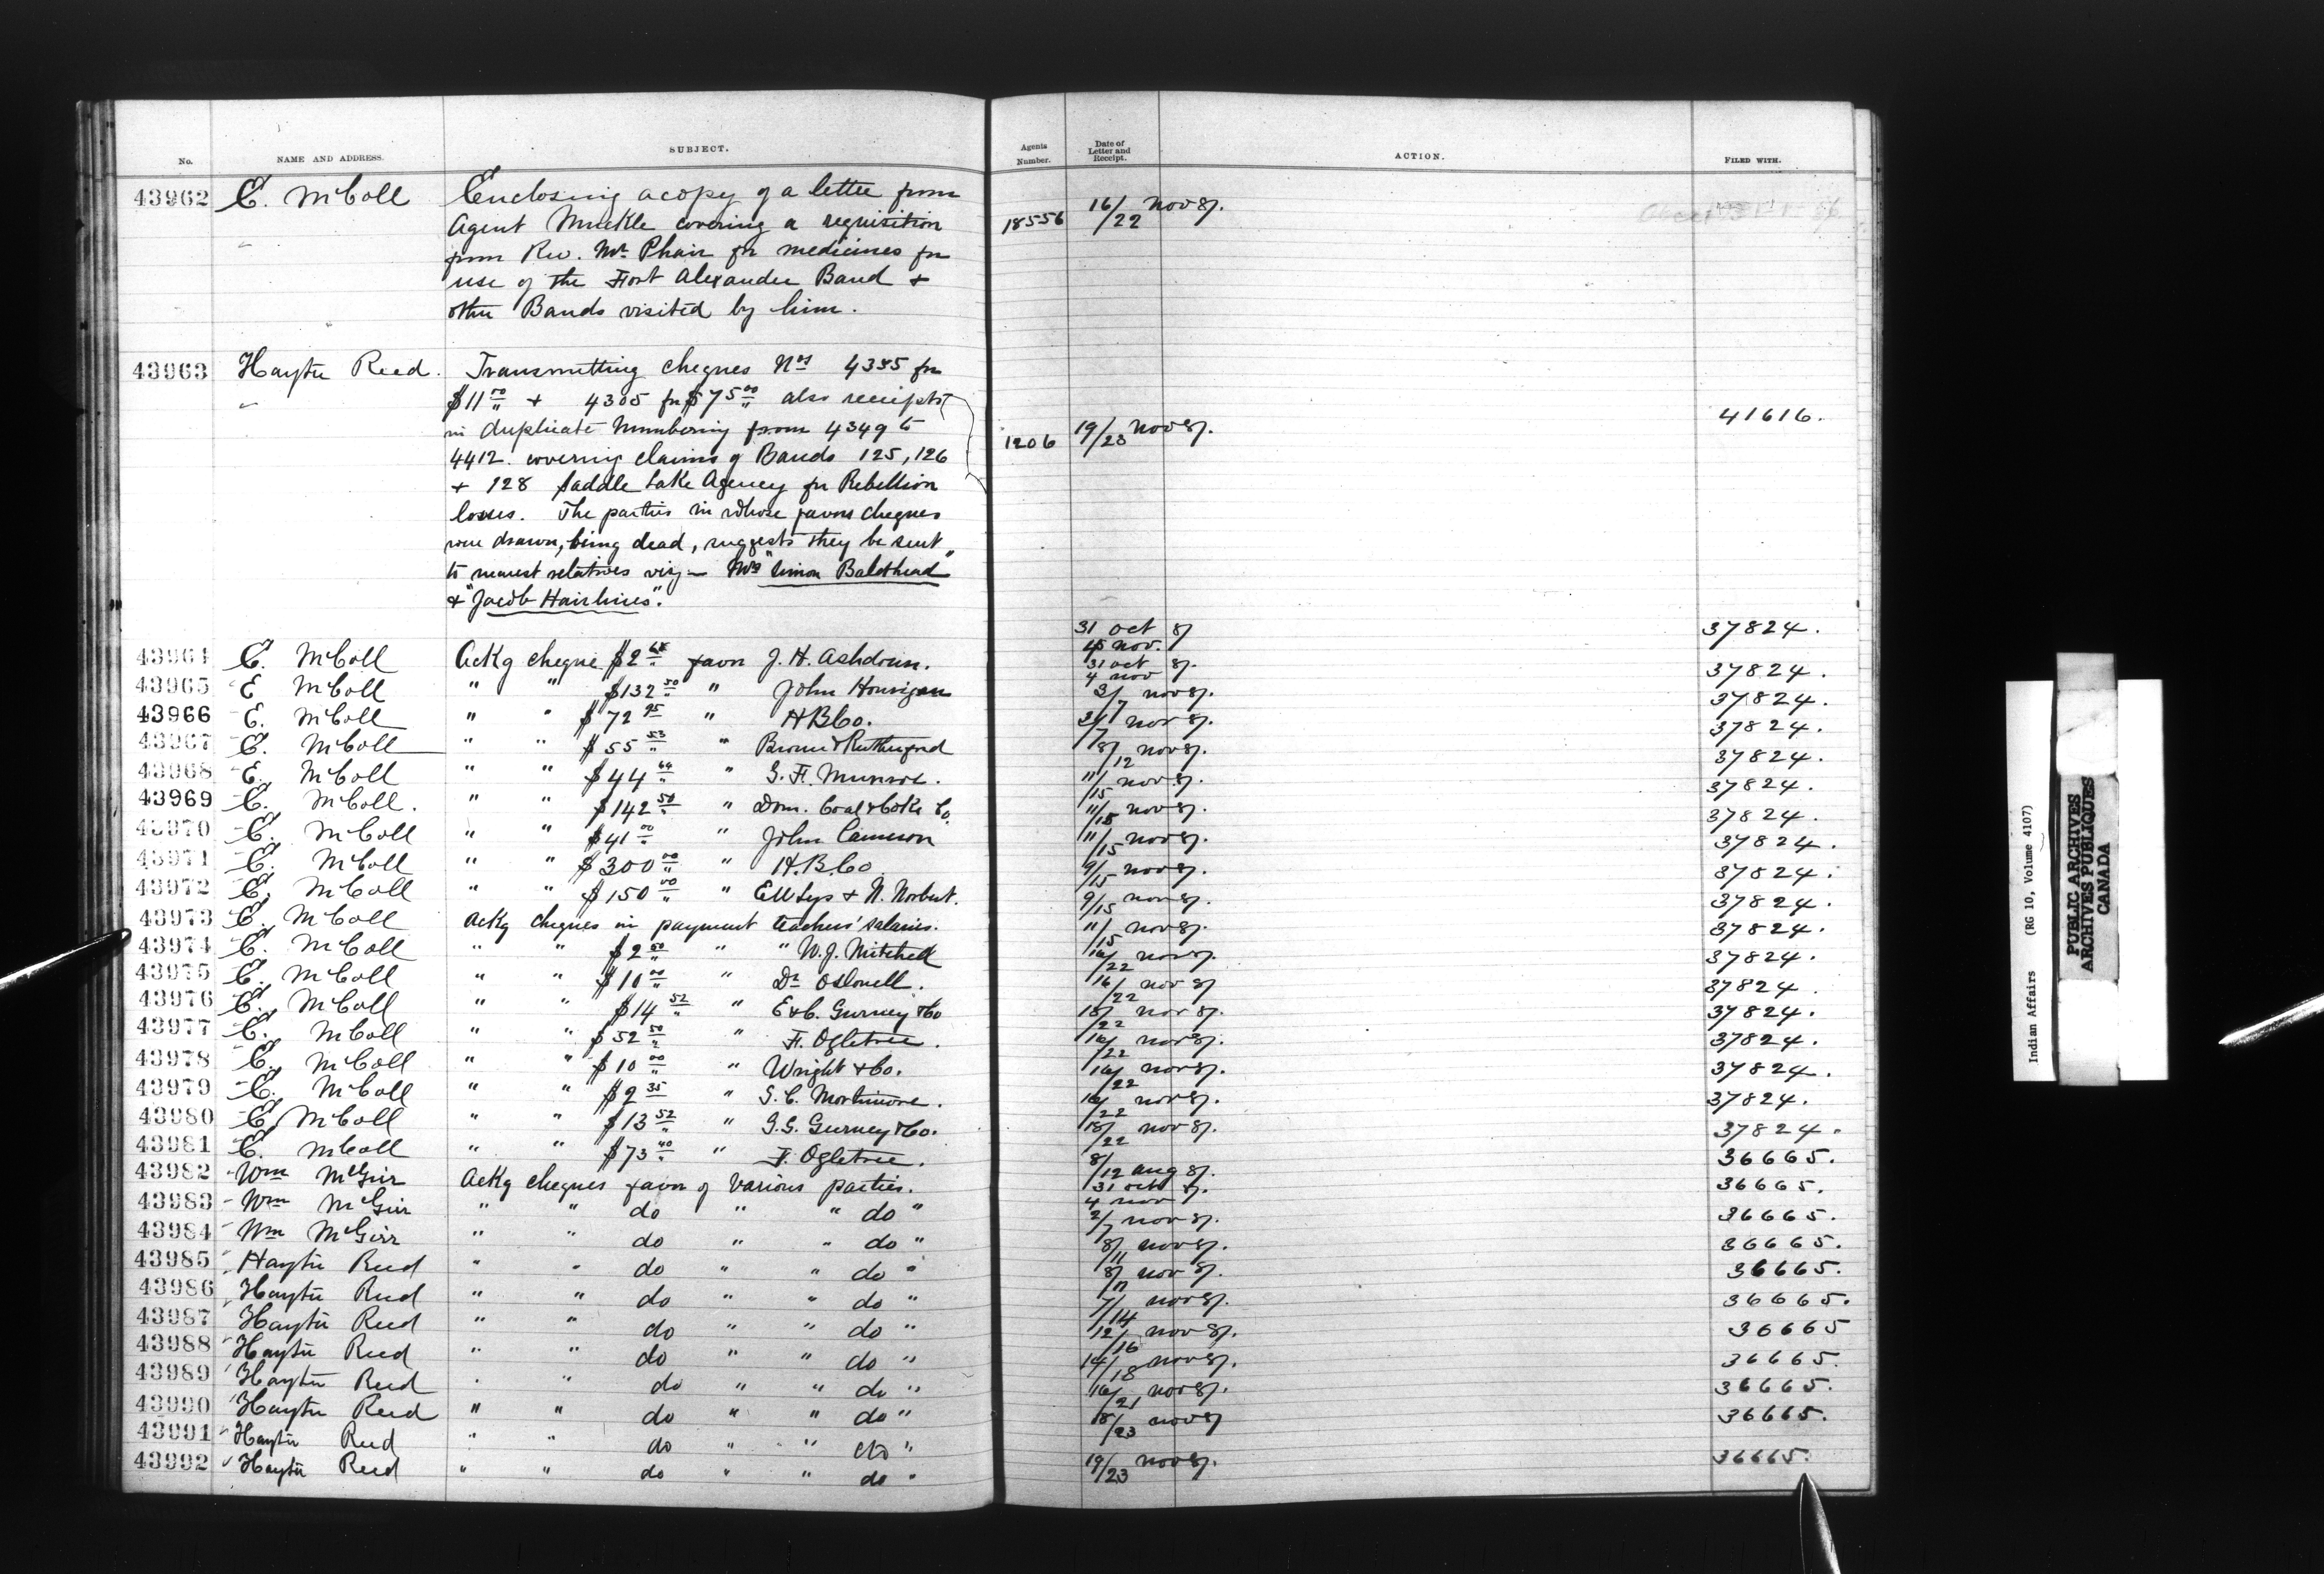 No. NAME AND ADDRESS. SUBJECT. Agents Number. Date of Letter and Receipt. ACTION. FILED WITH.
43962 E. McColl Enclosing a copy of a letter from 16/22 Nov 87.
Agent Muckle covering a requisition 18556
from Rev. Mr Phair for medicines for
use of the Fort Alexander Band +
other Bands visited by him.
43963 Hayter Reed. Transmitting cheques Nos 4385 for
$11 00 + 4305 for $75 00 also receipts 41616.
in duplicate numbering from 4349 to 1206 19/23 Nov 87.
4412. covering claims of Bands 125, 126
+ 128 Saddle Lake Agency for Rebellion
losses. The parties in whose favor cheques
were drawn, being dead, suggests they be sent
to nearest relatives viz — "Simon Baldhead"
+ "Jacob Hairlines".
43964 E. McColl Ackg cheque $2 68 favor J. H. Ashdown. 31 Oct 87 15 Nov. 37824.
43965 E McColl " " $132 50 " John Hourigan 31 Oct 87. 4 Nov 37824.
43966 E. McColl " " $72 95 " H B Co. 3/7 Nov 87. 37824.
43967 E. McColl " " $55 53 " Brown & Rutherford 3/7 Nov 87. 37824.
43968 E. McColl " " $44 64 " G. F. Munroe. 8/12 Nov 87. 37824.
43969 E. McColl. " " $142 50 " Dom. Coal & Coke Co. 11/15 Nov 87. 37824.
43970 E. McColl " " $41 00 " John Cameron 11/15 Nov 87. 37824.
43971 E. McColl " " $300 00 " H. B. Co 11/15 Nov 87. 37824.
43972 E. McColl " " $150 00 " & N. Norbert. 9/15 Nov 87. 37824.
43973 E. McColl Ackg cheques in payment teachers' salaries. 9/15 Nov 87. 37824.
43974 E. McColl " " $2 50 " " W. J. Mitchell 11/15 Nov 87. 37824.
43975 E. McColl " " $10 00 " Dr O'Donnell. 16/22 Nov 87. 37824.
43976 E. McColl " " $14 52 " E & C. Gurney & Co 16/22 Nov 87 37824.
43977 E. McColl " " $52 50 " F. Ogletree. 18/22 Nov 87. 37824.
43978 E. McColl " " $10 00 " Wright & Co. 16/22 Nov 87. 37824.
43979 E. McColl " " $2 35 " G. C. Mortimore. 16/22 Nov 87. 37824.
43980 E. McColl " " $13 52 " Gurney & Co. 16/22 Nov 87. 37824.
43981 E. McColl " " $73 40 " F. Ogletree. 18/22 Nov 87. 37824.
43982 Wm McGirr Ackg cheques favor of various parties. 8/12 Aug 87. 36665.
43983 Wm McGirr " " do " " do " 31 Oct 87. 4 Nov 36665.
43984 Wm McGirr " " do " " do " 2/7 Nov 87. 36665.
43985 Hayter Reed " " do " " do " 8/11 Nov 87. 36665.
43986 Hayter Reed " " do " " do " 8/11 Nov 87. 36665.
43987 Hayter Reed " " do " " do " 7/14 Nov 87. 36665.
43988 Hayter Reed " " do " " do " 12/16 Nov 87. 36665
43989 Hayter Reed " " do " " do " 14/18 Nov 87. 36665.
43990 Hayter Reed " " do " " do " 16/21 Nov 87. 36665.
43991 Hayter Reed " " do " " do " 18/23 Nov 87 36665.
43992 Hayter Reed " " do " " do " 19/23 Nov 87. 36665.
Indian Affairs (RG 10, Volume 4107)
PUBLIC ARCHIVES
ARCHIVES PUBLIQUES
CANADA